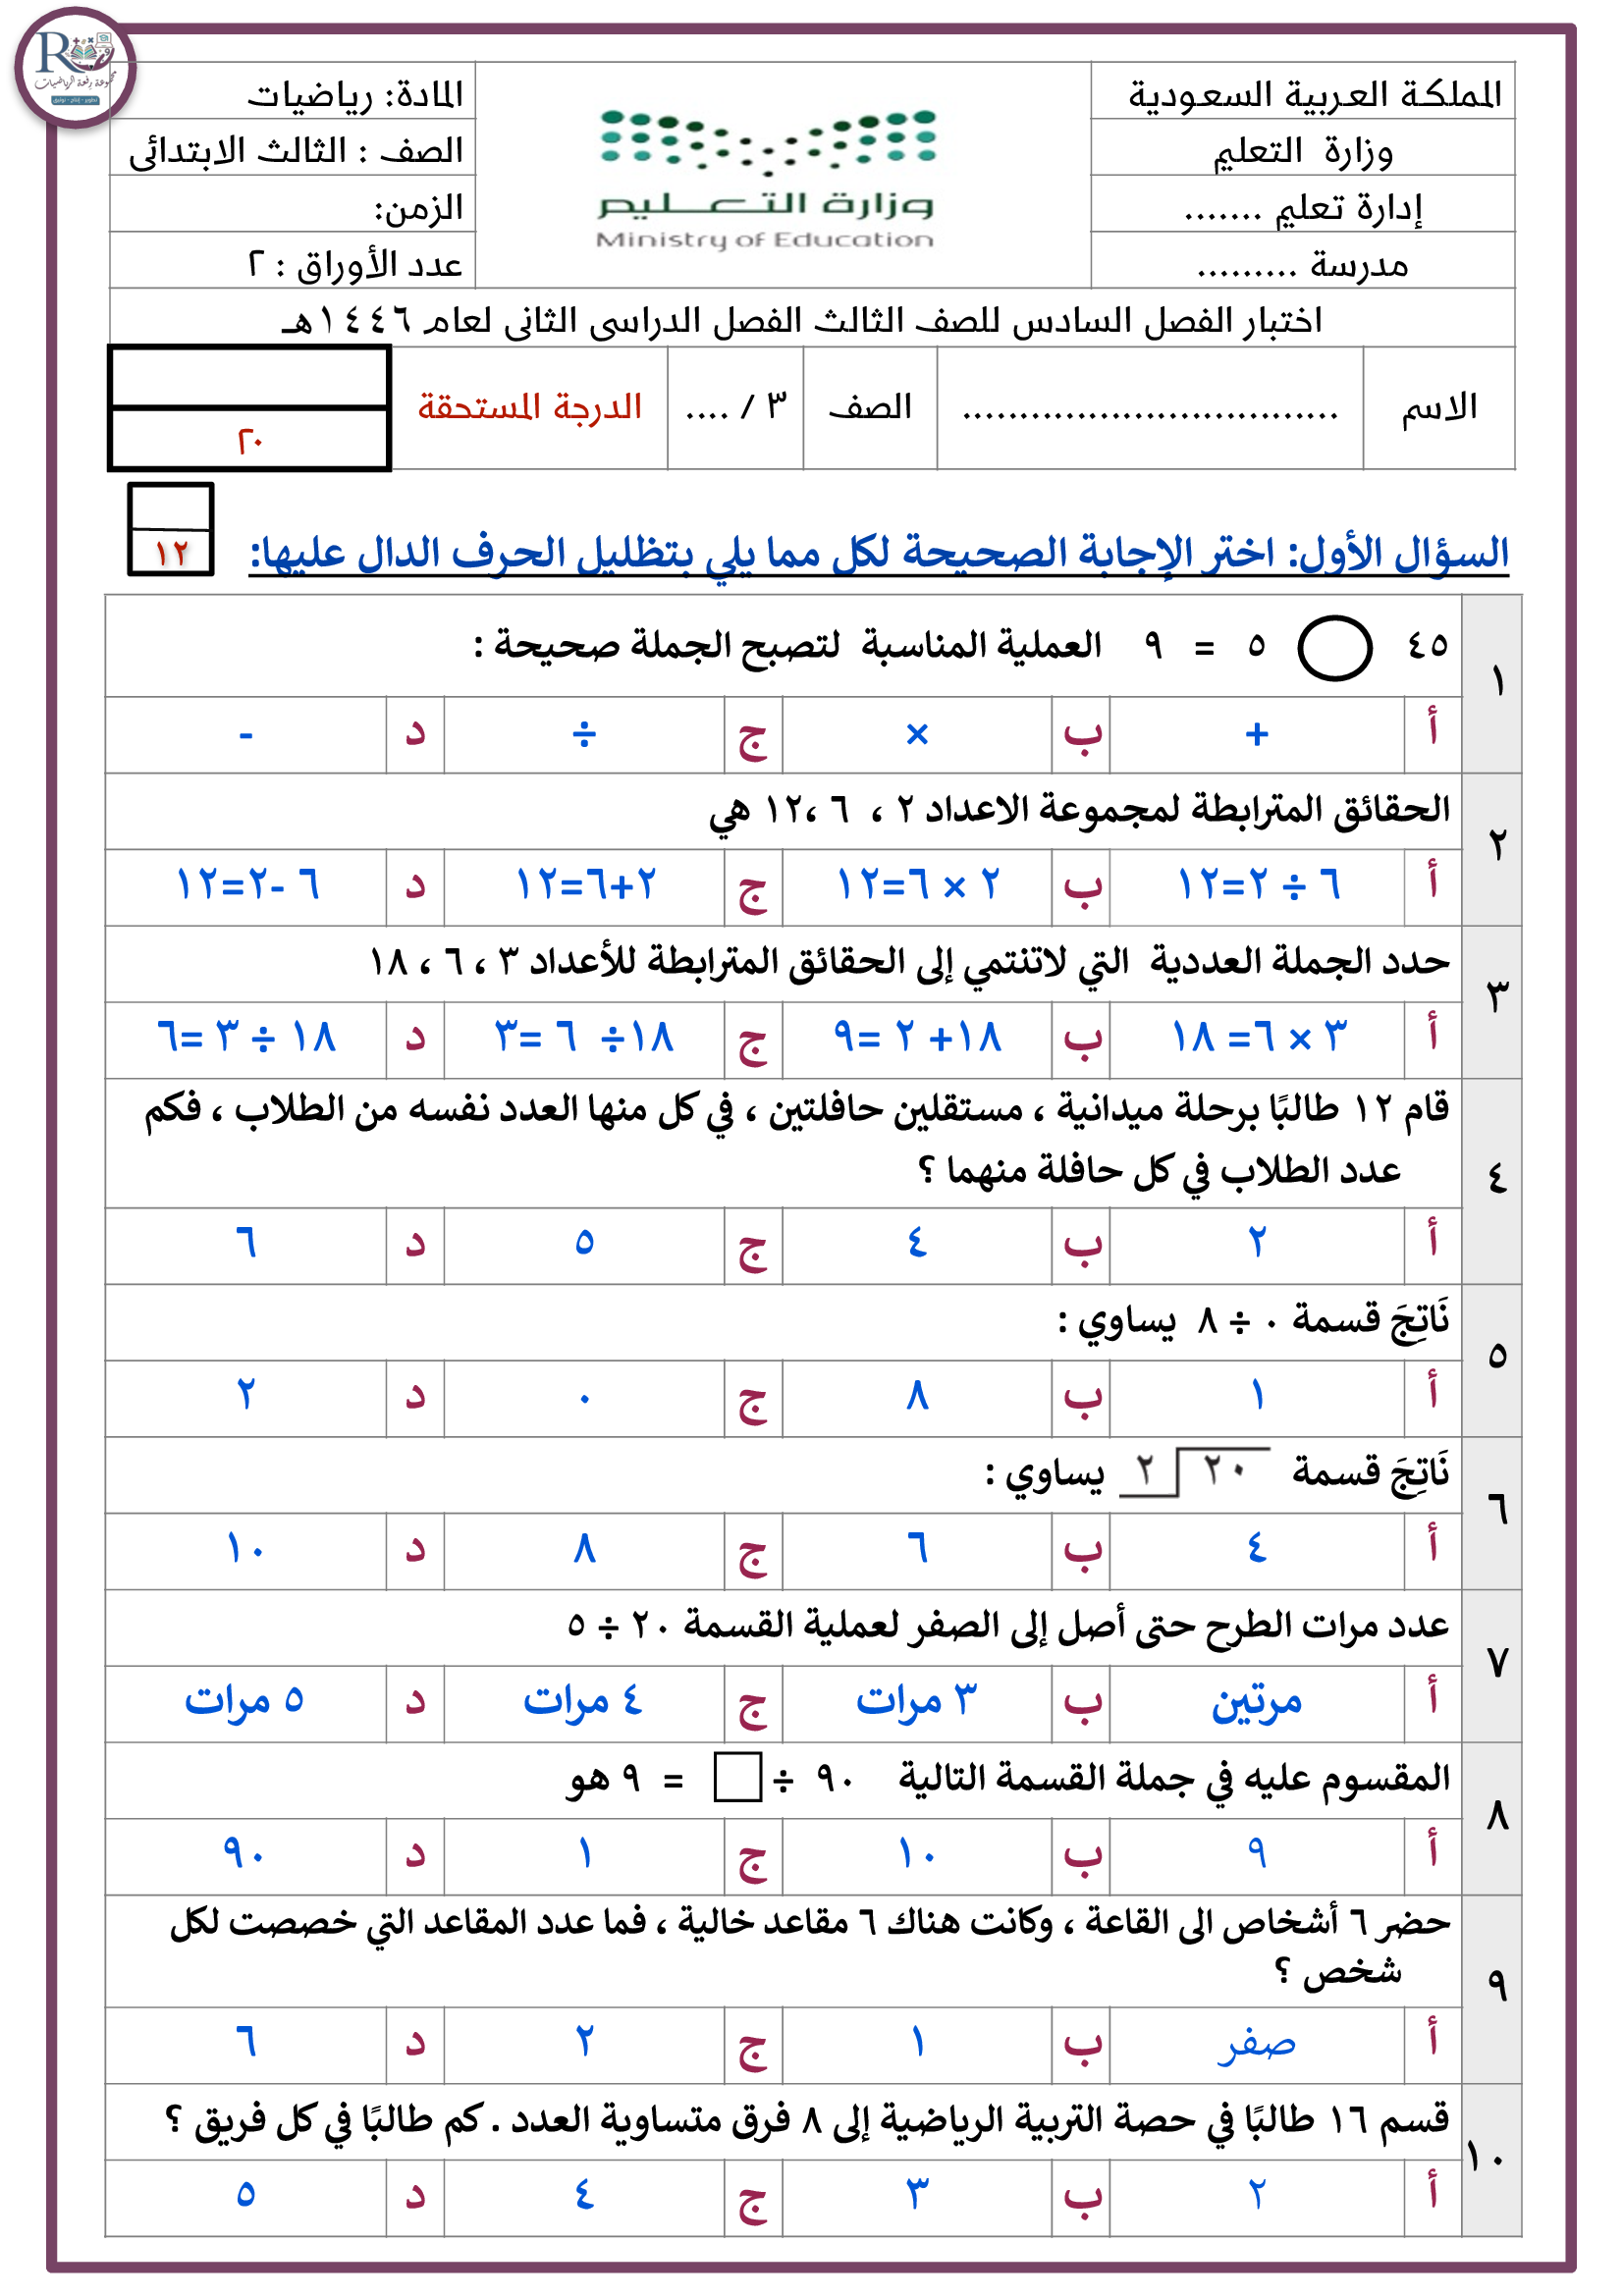 مجموعة رفعة الرياضيات
تطوير - إنتاج - توثيق
المملكة العربية السعودية
وزارة التعليم
إدارة تعليم .......
مدرسة .........
وزارة التعليم
Ministry of Education
المادة: رياضيات
الصف : الثالث الابتدائى
الزمن:
عدد الأوراق : ٢
اختبار الفصل السادس للصف الثالث الفصل الدراسى الثانى لعام ١٤٤٦هـ
الاسم ................................. الصف ٣ / .... الدرجة المستحقة ٢٠
السؤال الأول: اختر الإجابة الصحيحة لكل مما يلي بتظليل الحرف الدال عليها: ١٢
١ ٤٥ ◯ ٥ = ٩ العملية المناسبة لتصبح الجملة صحيحة :
أ + ب × ج ÷ د -
٢ الحقائق المترابطة لمجموعة الاعداد ٢ ، ٦ ،١٢ هي
أ ٦ ÷ ٢=١٢ ب ٢ × ٦=١٢ ج ٢+٦=١٢ د ٦ -٢=١٢
٣ حدد الجملة العددية التي لاتنتمي إلى الحقائق المترابطة للأعداد ٣ ، ٦ ، ١٨
أ ٣ × ٦= ١٨ ب ١٨+ ٢ =٩ ج ١٨÷ ٦ =٣ د ١٨ ÷ ٣ =٦
٤ قام ١٢ طالبًا برحلة ميدانية ، مستقلين حافلتين ، في كل منها العدد نفسه من الطلاب ، فكم
عدد الطلاب في كل حافلة منهما ؟
أ ٢ ب ٤ ج ٥ د ٦
٥ نَاتِجَ قسمة ٠ ÷ ٨ يساوي :
أ ١ ب ٨ ج ٠ د ٢
٦ نَاتِجَ قسمة ٢٠ ٢ يساوي :
أ ٤ ب ٦ ج ٨ د ١٠
٧ عدد مرات الطرح حتى أصل إلى الصفر لعملية القسمة ٢٠ ÷ ٥
أ مرتين ب ٣ مرات ج ٤ مرات د ٥ مرات
٨ المقسوم عليه في جملة القسمة التالية ٩٠ ÷ □ = ٩ هو
أ ٩ ب ١٠ ج ١ د ٩٠
٩ حضر ٦ أشخاص الى القاعة ، وكانت هناك ٦ مقاعد خالية ، فما عدد المقاعد التي خصصت لكل
شخص ؟
أ صفر ب ١ ج ٢ د ٦
١٠ قسم ١٦ طالبًا في حصة التربية الرياضية إلى ٨ فرق متساوية العدد . كم طالبًا في كل فريق ؟
أ ٢ ب ٣ ج ٤ د ٥